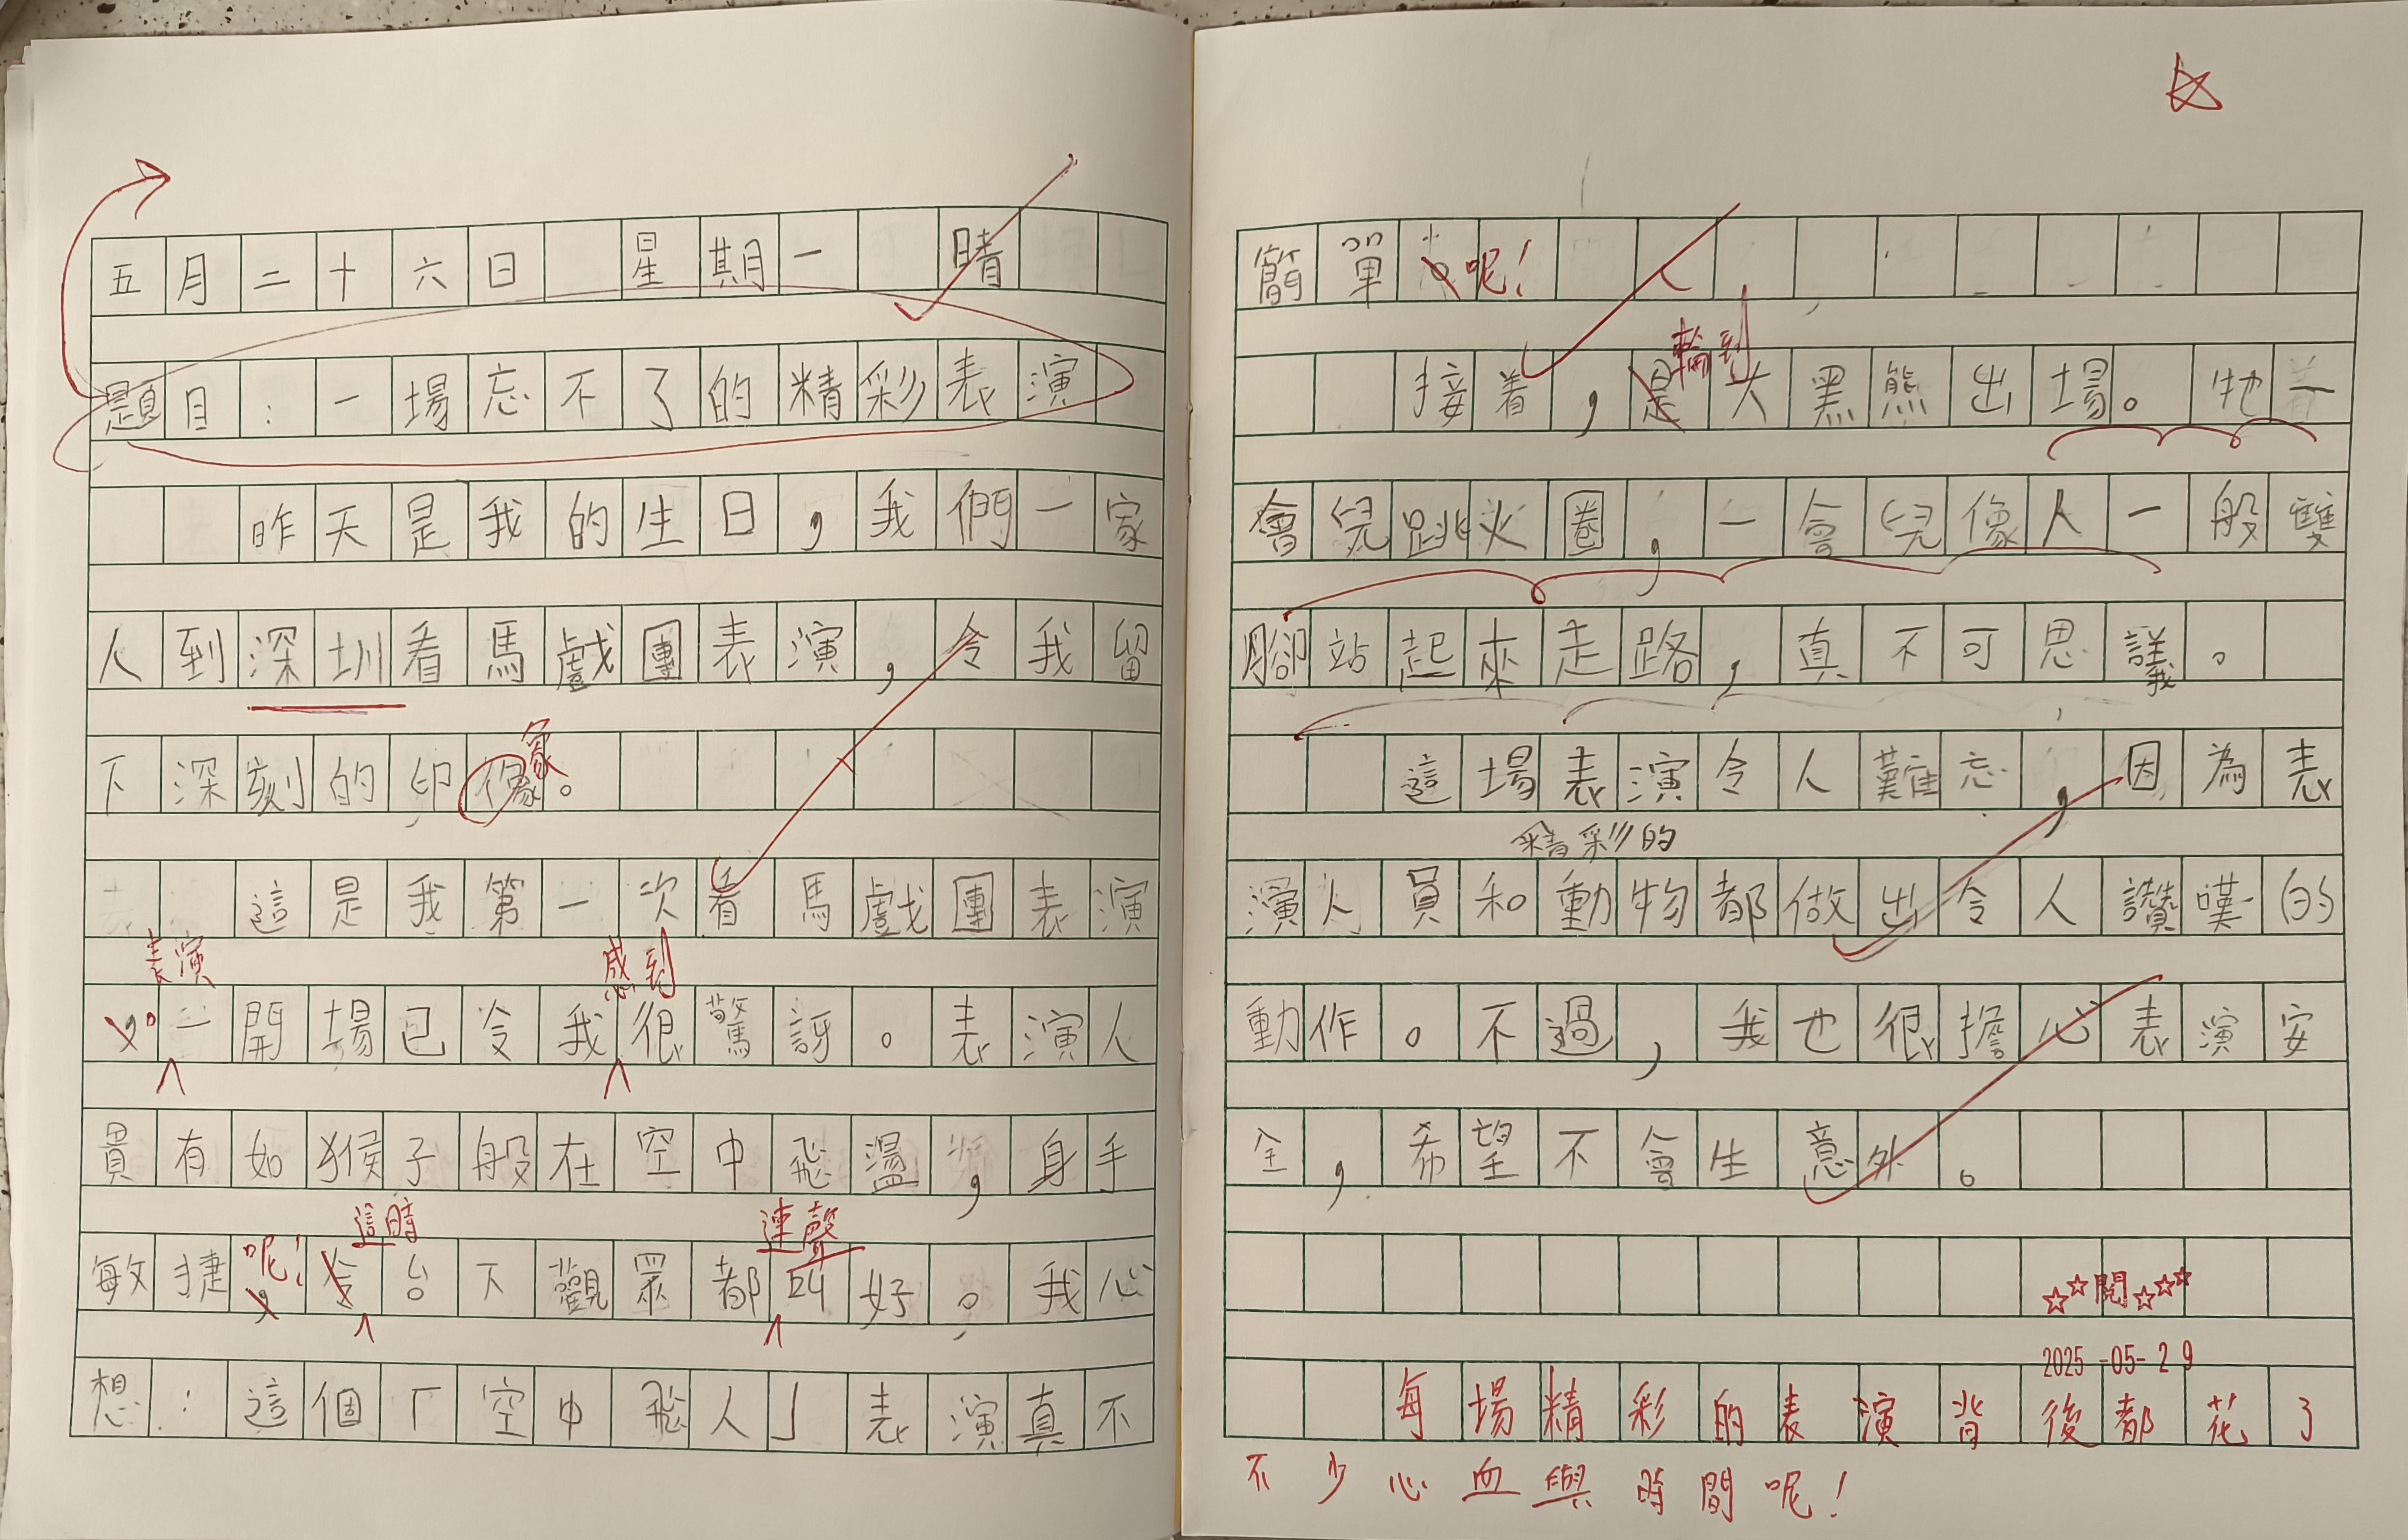 五月二十六日 星期一 晴
題目：一場忘不了的精彩表演
昨天是我的生日，我們一家
人到深圳看馬戲團表演，令我留
象
下深刻的印像。
這是我第一次看馬戲團表演
表演 感到
，。一開場已令我很驚訝。表演人
員有如猴子般在空中飛盪，身手
呢！ 這時 連聲
敏捷，令台下觀眾都叫好。我心
想：這個「空中飛人」表演真不
簡單。呢！
輪到
接着，是大黑熊出場。牠一
會兒跳火圈，一會兒像人一般雙
腳站起來走路，真不可思議。
這場表演令人難忘，因為表
精彩的
演人員和動物都做出令人讚嘆的
動作。不過，我也很擔心表演安
全，希望不會生意外。
☆☆閱☆☆☆
2025-05-29
每場精彩的表演背後都花了
不少心血與時間呢！